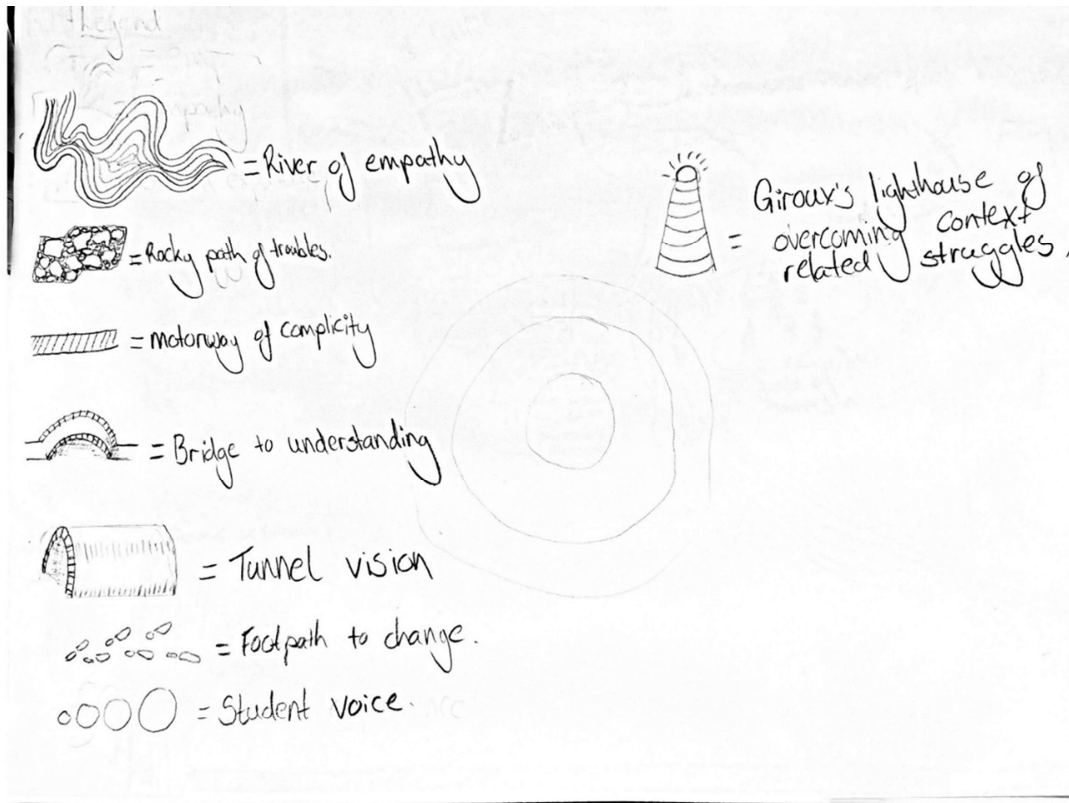 Legend
= River of empathy
= Rocky path of troubles.
= Motorway of complicity
= Bridge to understanding
= Tunnel vision
= Footpath to change.
= Student voice.
Giroux's lighthouse of
= overcoming context
related struggles.